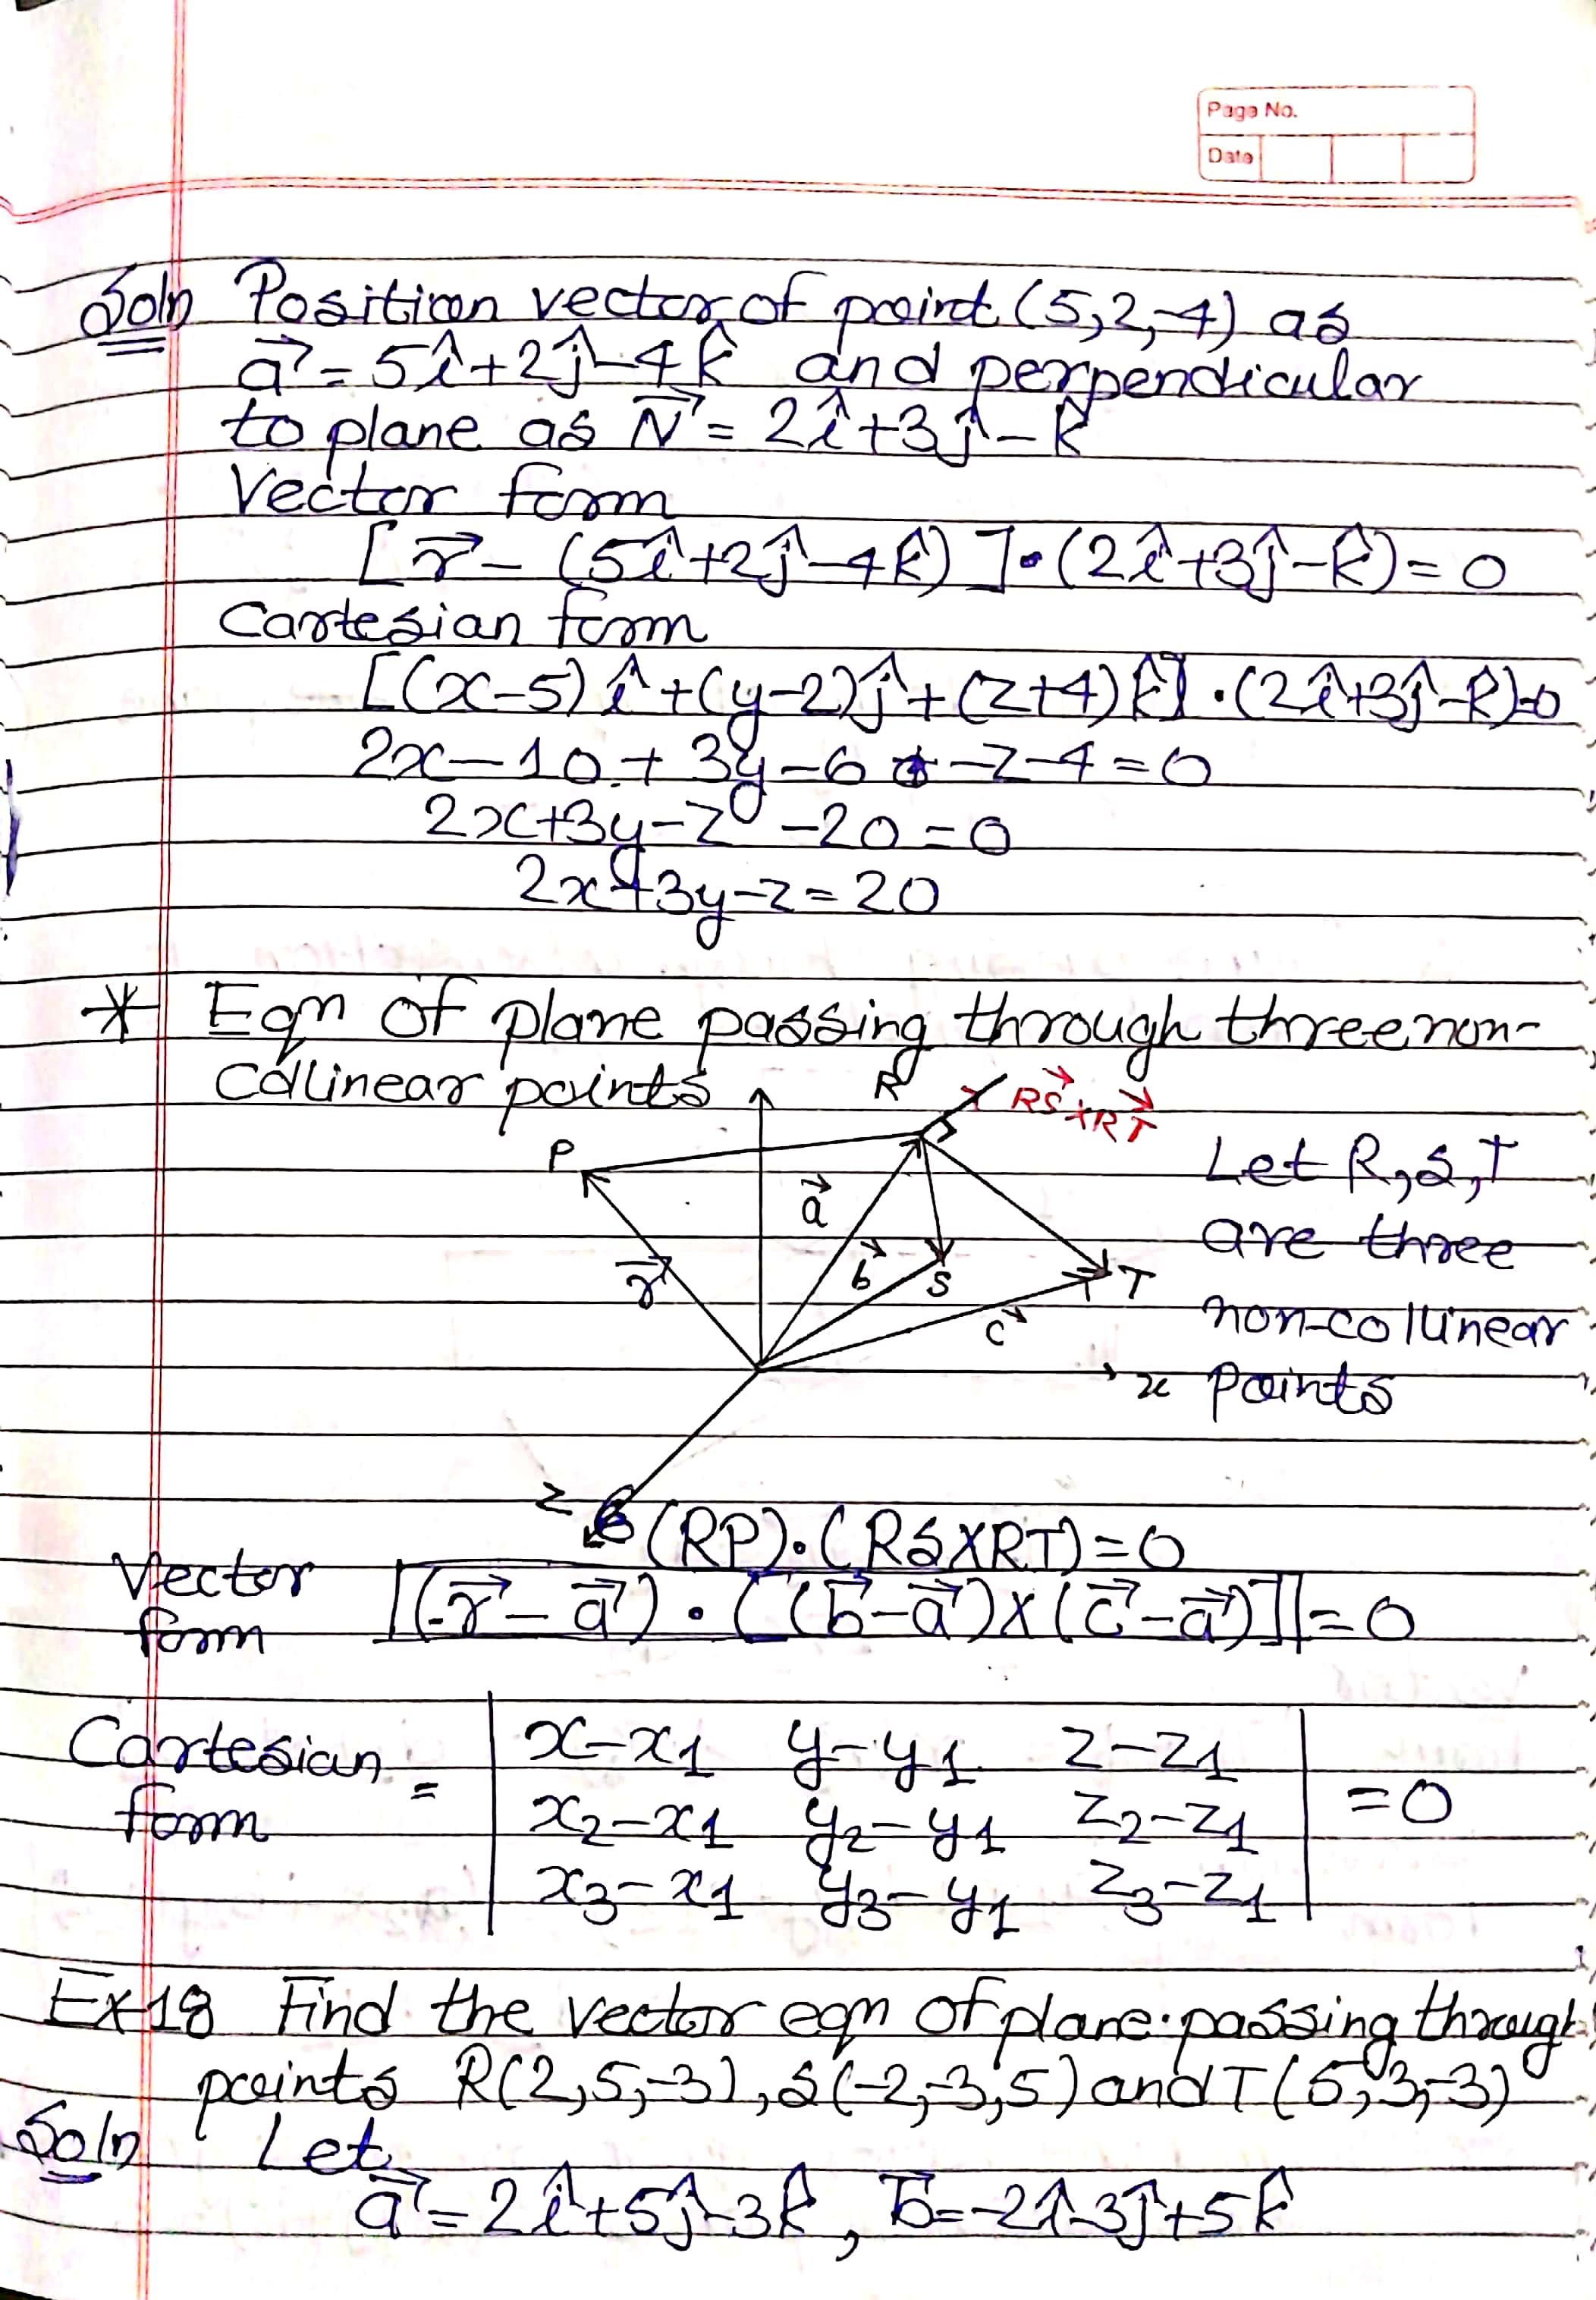 Page No.
Date
Soln Position vector of point (5,2,-4) as
a⃗ = 5î+2ĵ-4k̂ and perpendicular
to plane as N⃗ = 2î+3ĵ-k̂
Vector form
[r⃗ - (5î+2ĵ-4k̂)]·(2î+3ĵ-k̂)=0
Cartesian form
[(x-5)î+(y-2)ĵ+(z+4)k̂]·(2î+3ĵ-k̂)=0
2x-10+3y-6-z-4=0
2x+3y-z-20=0
2x+3y-z=20
* Eqn of plane passing through three non-
collinear points
R RS⃗×RT⃗
P
a⃗
Let R,S,T
are three
r⃗ b⃗ S T
c⃗ non-collinear
x points
z
(RP)·(RS×RT)=0
Vector form [(r⃗-a⃗)·((b⃗-a⃗)×(c⃗-a⃗)]=0
Cartesian form = | x-x1 y-y1 z-z1 |
| x2-x1 y2-y1 z2-z1 | =0
| x3-x1 y3-y1 z3-z1 |
Ex18 Find the vector eqn of plane passing through
points R(2,5,-3), S(-2,-3,5) and T(5,3,-3)
Soln Let
a⃗=2î+5ĵ-3k̂, b⃗=-2î-3ĵ+5k̂